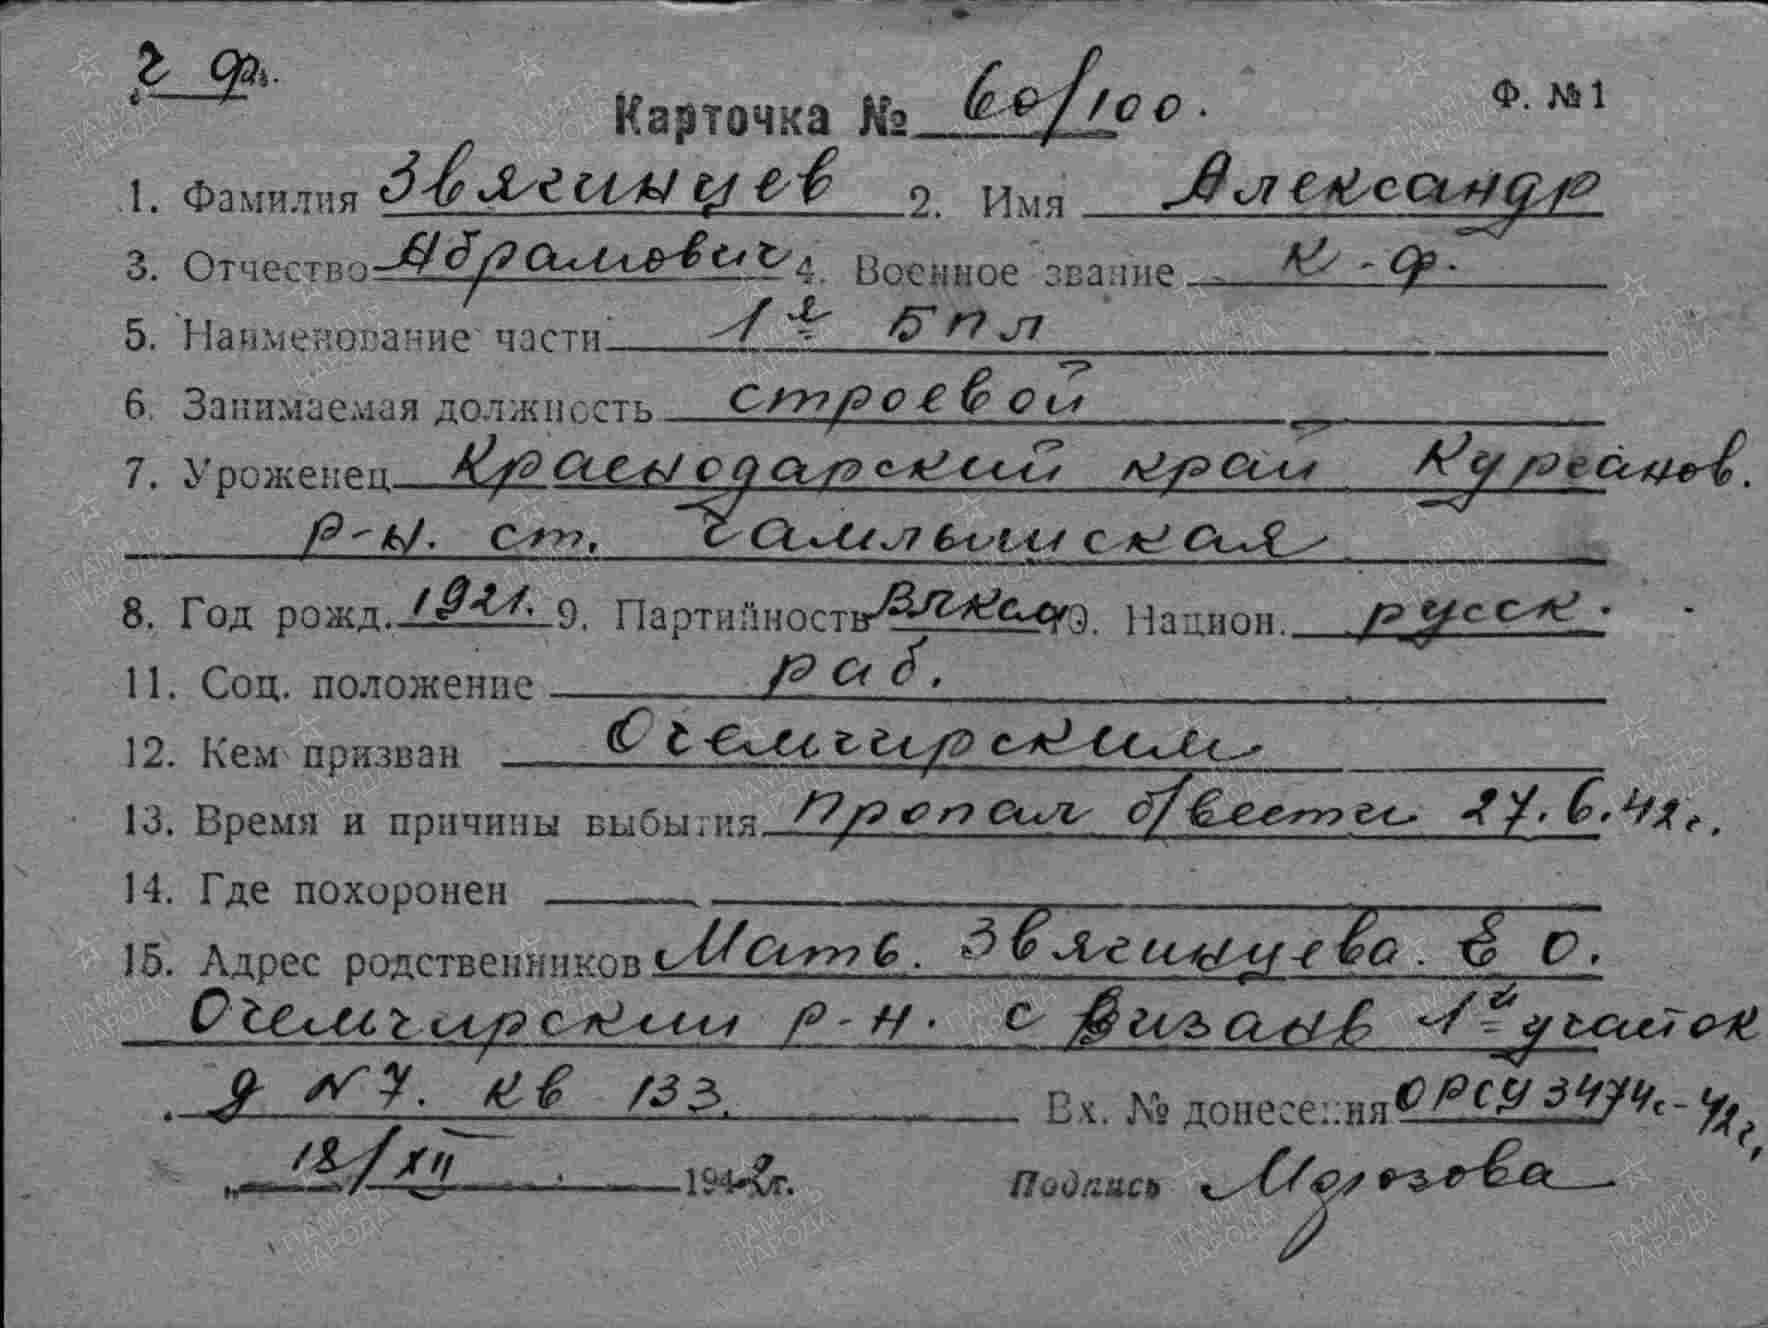 г ф.
Карточка № 60/100.
Ф. №1
1. Фамилия Звягинцев 2. Имя Александр
3. Отчество Абрамович 4. Военное звание к-ф.
5. Наименование части 1я Бпл
6. Занимаемая должность строевой
7. Уроженец Краснодарский край Курганов.
р-н. ст. Чамлыкская
8. Год рожд. 1921. 9. Партийность 10. Национ. русск.
11. Соц. положение раб.
12. Кем призван Очемчирским
13. Время и причины выбытия Пропал б/вести 27.6.42г.
14. Где похоронен
15. Адрес родственников Мать. Звягинцева. Е О.
Очемчирский р-н. с 1й участок
д N 7. кв 133.
Вх. № донесения ОРСУ 3474с-42г.
„18/XII 1942г.
Подпись Морозова
ПАМЯТЬ НАРОДА